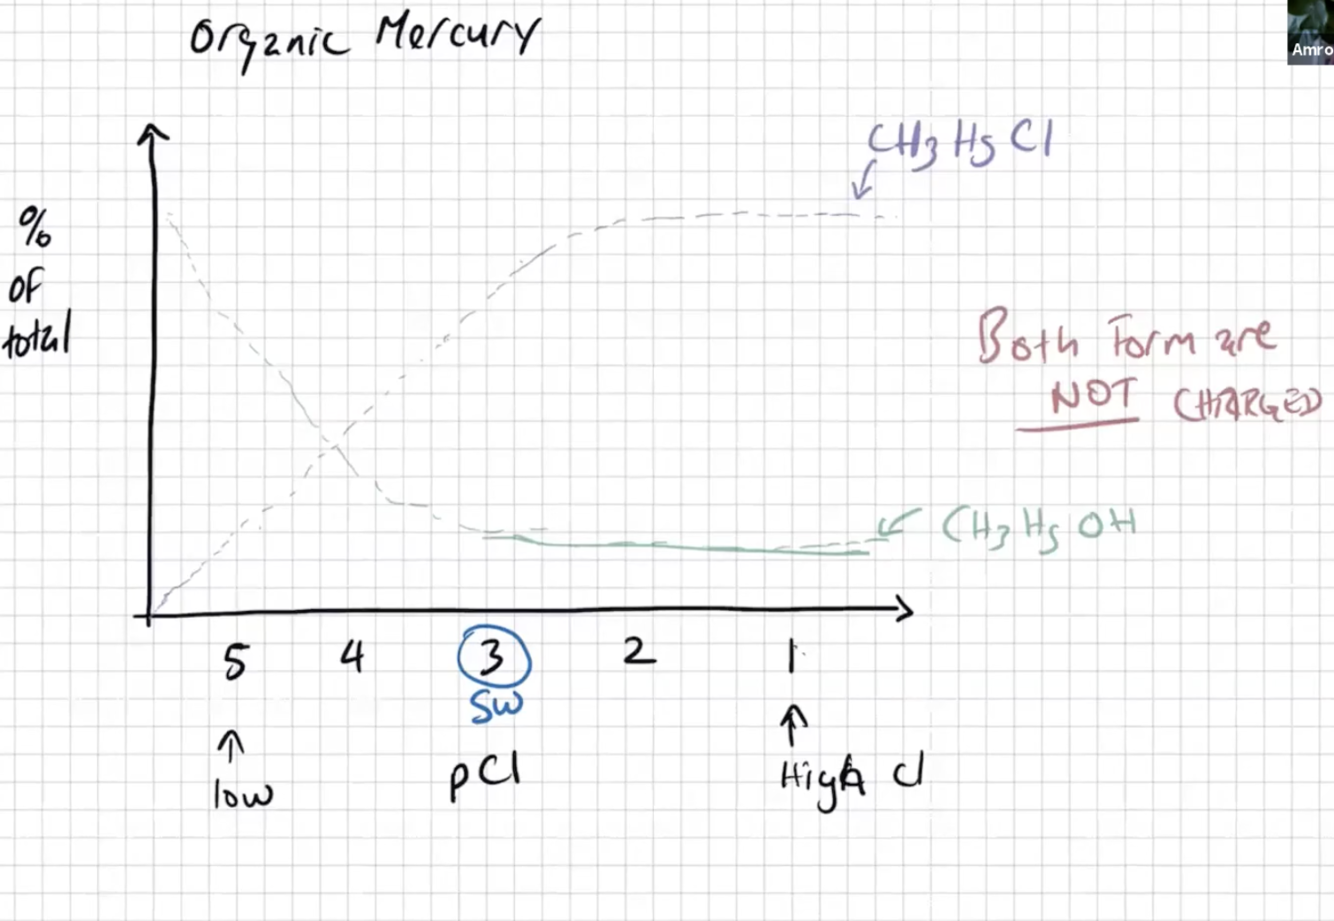 Organic Mercury
Amro
CH3 Hg Cl
%
of
total
Both Form are
NOT CHARGED
CH3 Hg OH
5 4 3 2 1
SW
low
pCl
High Cl